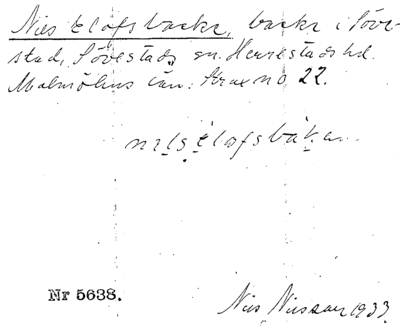 Nils Elofsbacke, backe i Söve-
stad, Sövestads sn. Herrestads hd.
Malmöhus län. Strax no 22.
Nr 5638.
Nils Nilsson 1933.